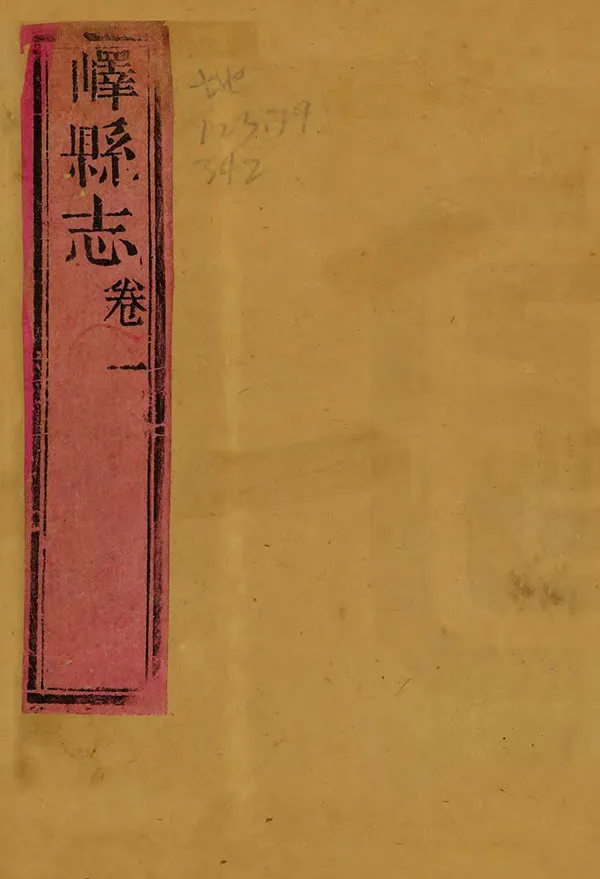 嶧縣志
卷一
地
123.79
342